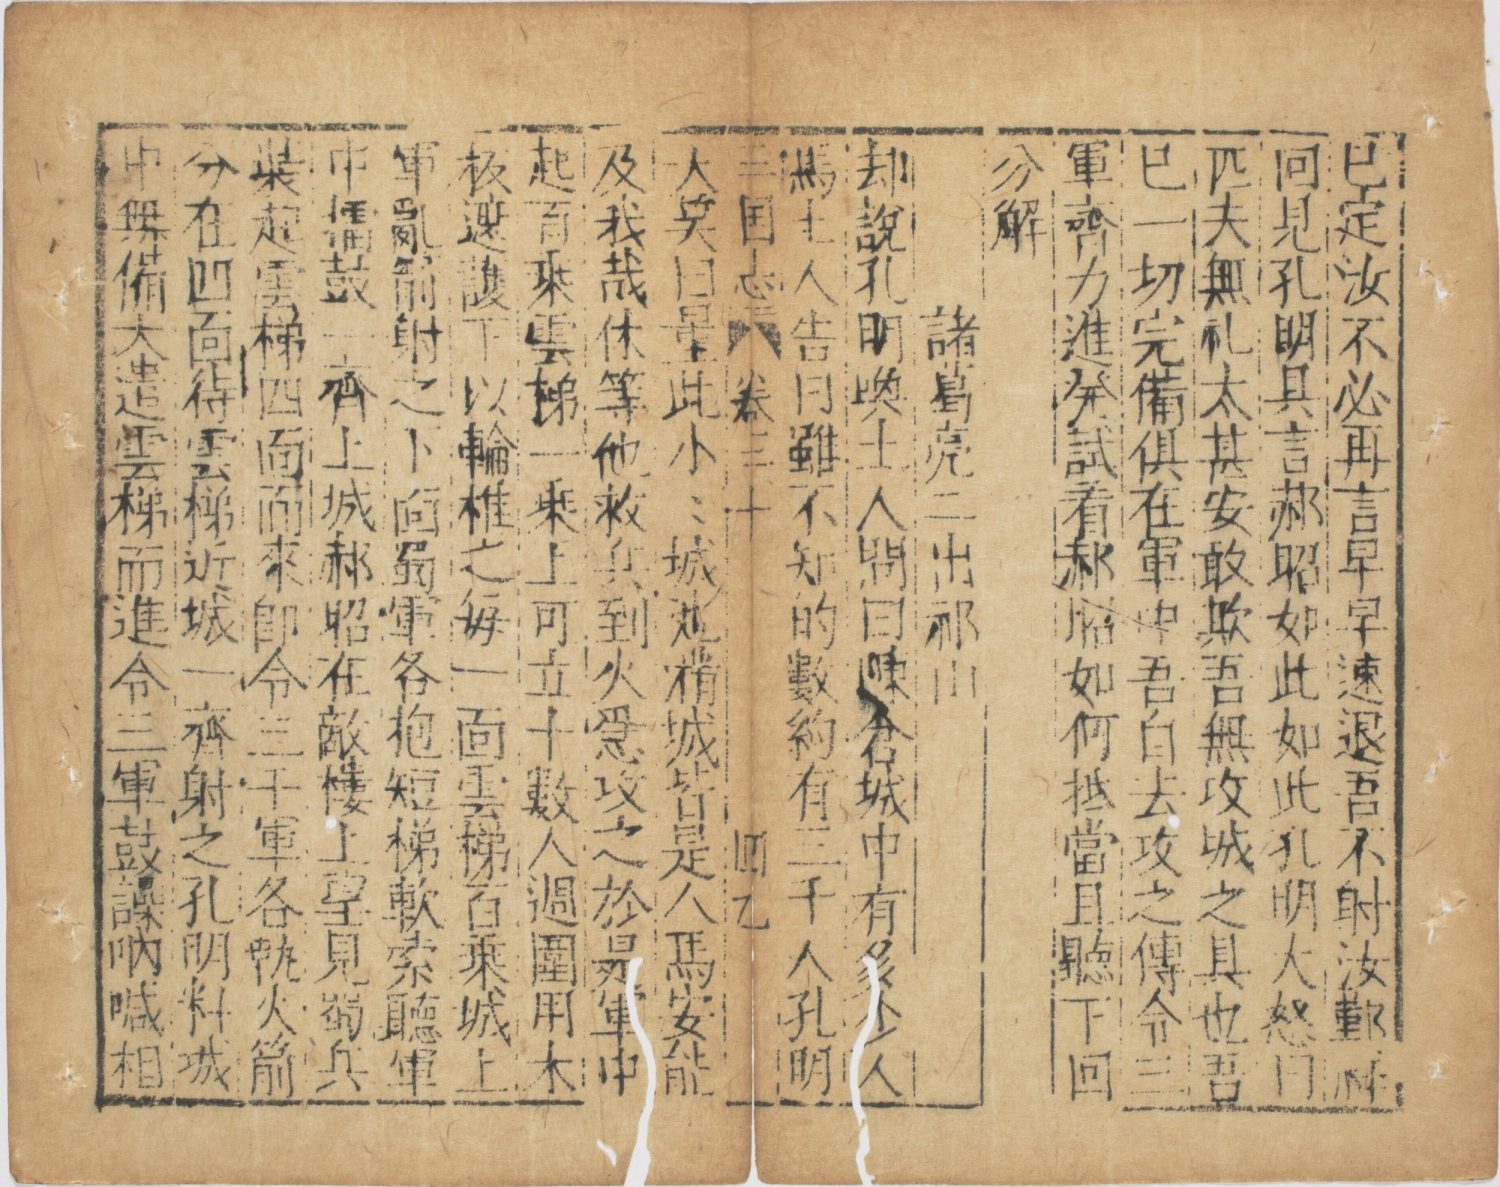 已定汝不必再言早早速退吾不射汝鄞祥
回見孔明具言郝昭如此如此孔明大怒曰
匹夫無礼太甚安敢欺吾無攻城之具也吾
已一切完備俱在軍中吾自去攻之傳令三
軍齊力進發試看郝昭如何抵當且聽下回
分解
諸葛亮二出祁山
却說孔明喚土人問曰陳倉城中有多少人
馬土人告曰雖不知的數約有三千人孔明
三国志 卷三十 四乙
大笑曰量此小〻城池稍城皆是人馬安能
及我哉休等他救兵到火急攻之於是軍中
起百乘雲梯一乘上可立十數人過圍用木
板遮護下以輪椎之每一面雲梯百乘城上
軍亂箭射之下面蜀軍各抱短梯軟索聽軍
中擂鼓一齊上城郝昭在敵樓上望見蜀兵
裝起雲梯四面而來即令三千軍各執火箭
分在四面待雲梯近城一齊射之孔明料城
中無備大造雲梯而進令三軍鼓譟吶喊相